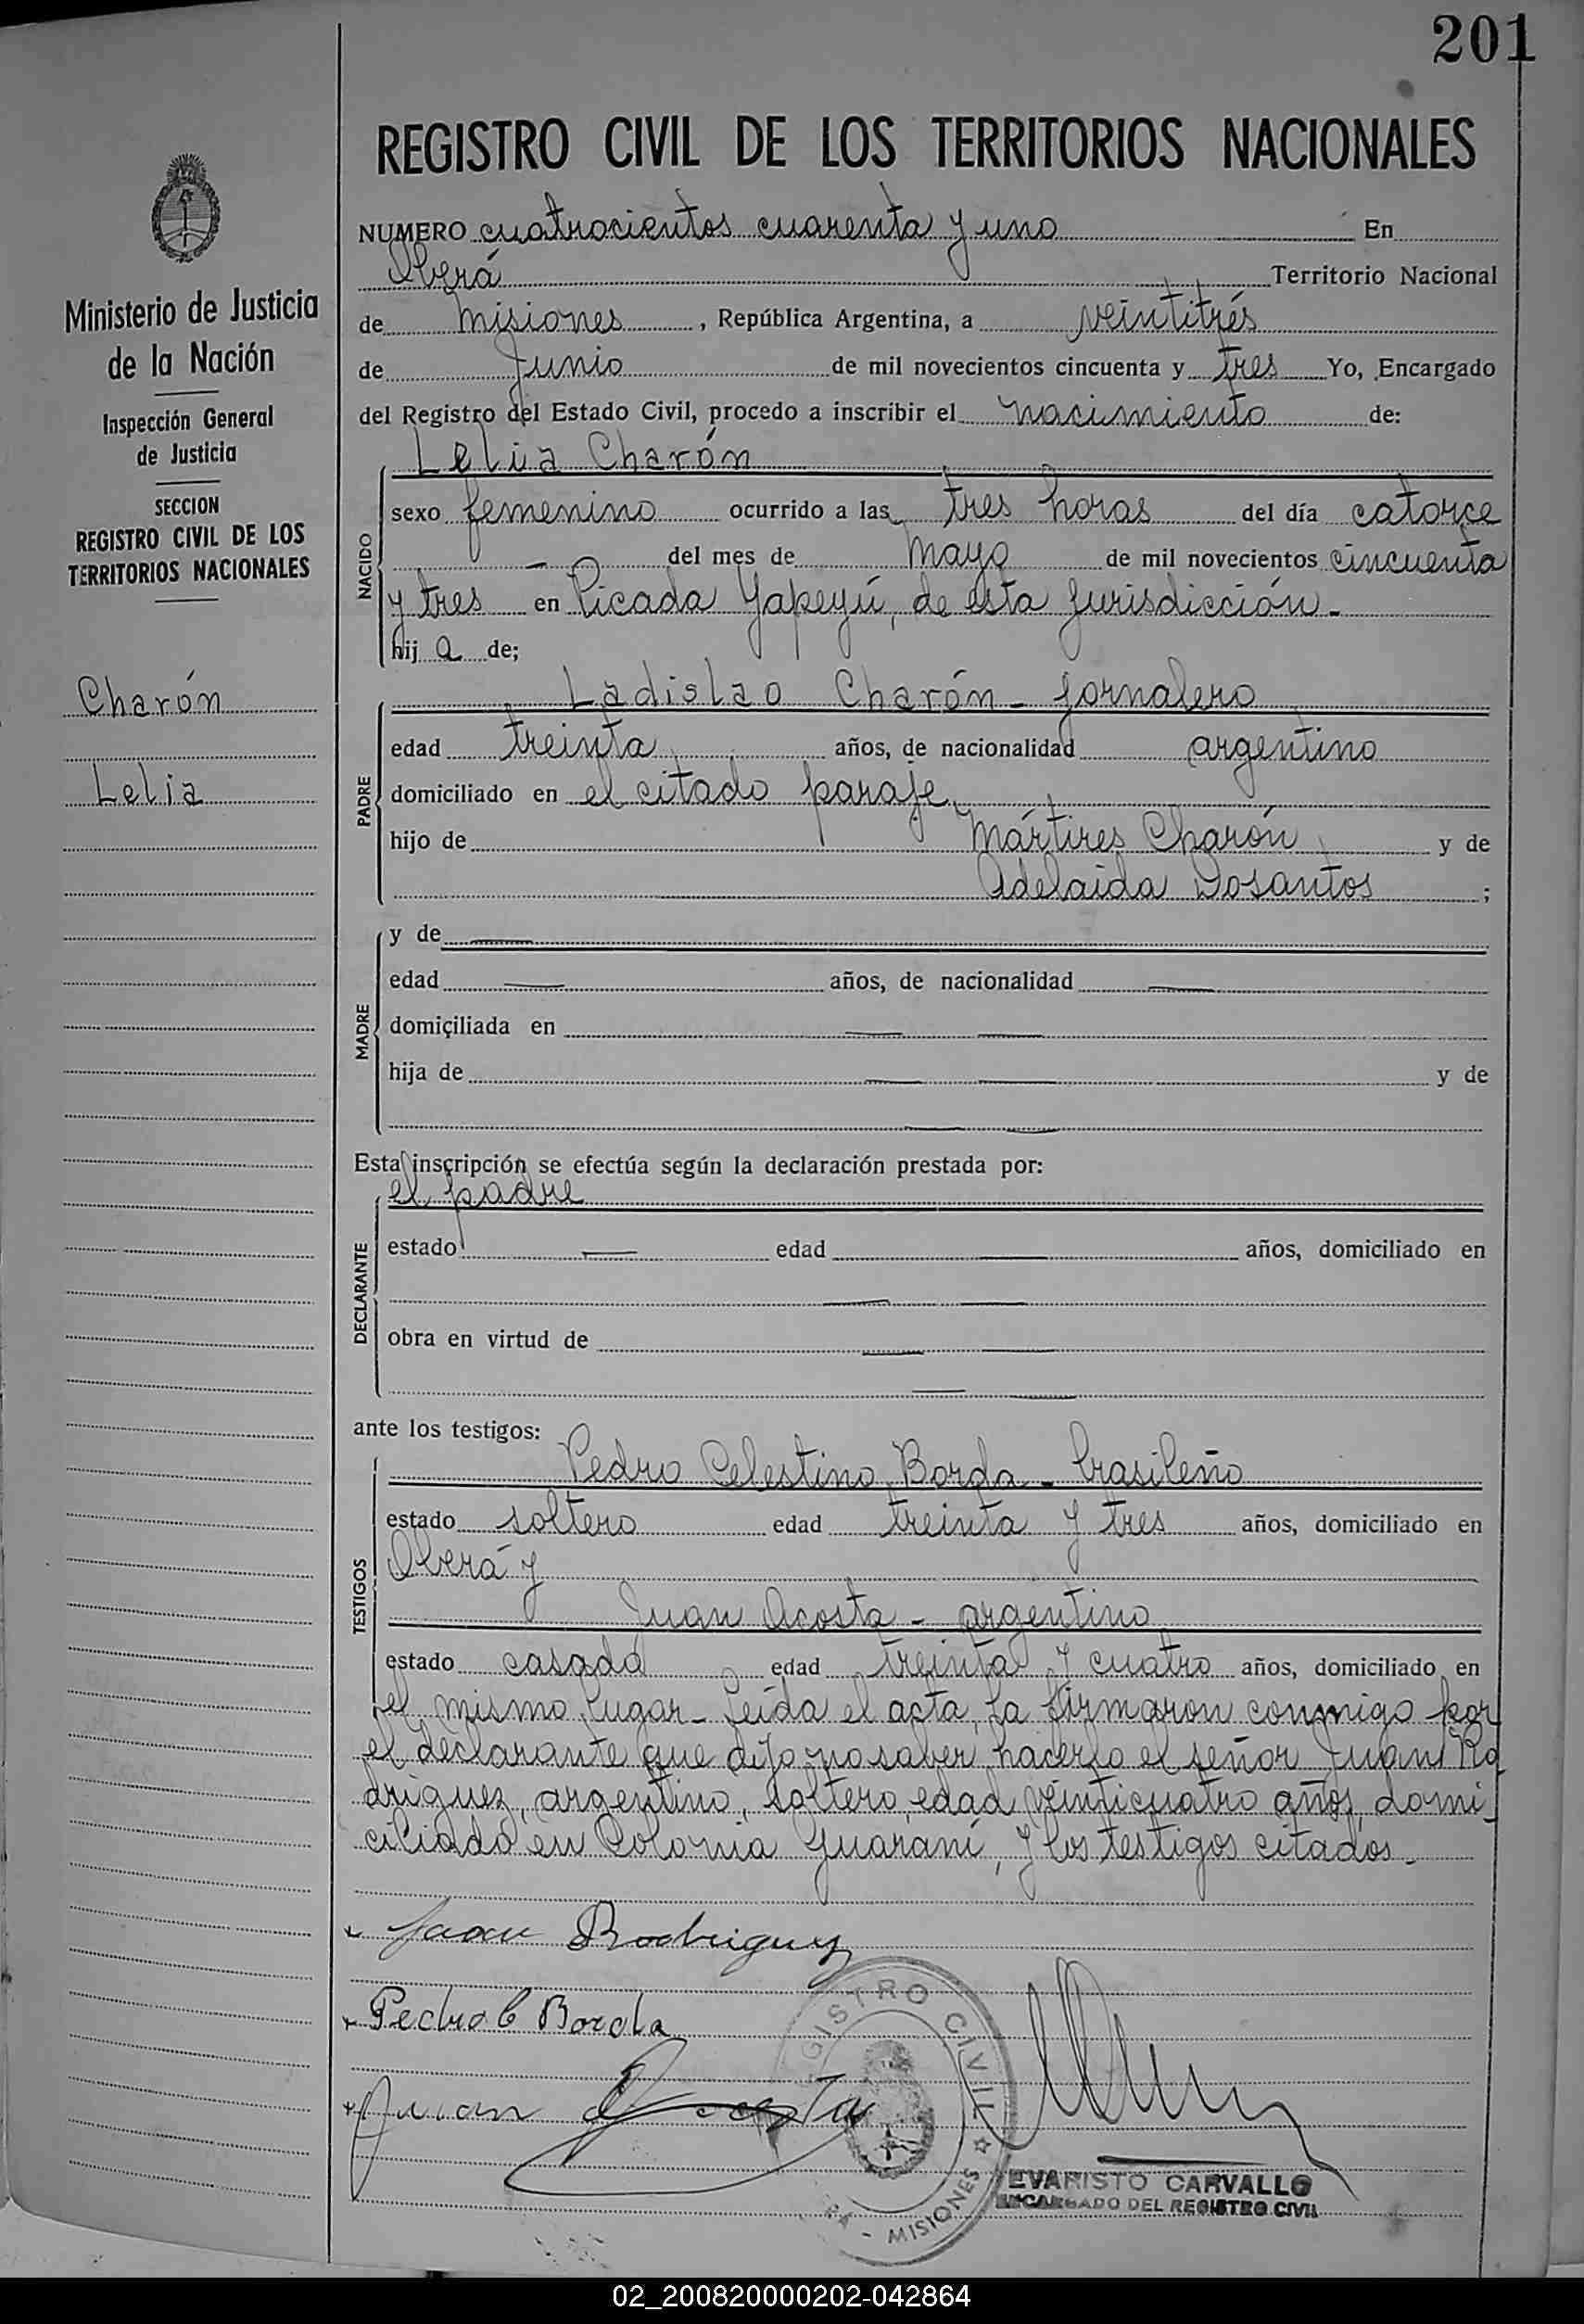 201
REGISTRO CIVIL DE LOS TERRITORIOS NACIONALES
Ministerio de Justicia
de la Nación
Inspección General
de Justicia
SECCION
REGISTRO CIVIL DE LOS
TERRITORIOS NACIONALES
Charón
Lelia
NUMERO cuatrocientos cuarenta y uno En
Oberá Territorio Nacional
de Misiones, República Argentina, a veintitrés
de Junio de mil novecientos cincuenta y tres Yo, Encargado
del Registro del Estado Civil, procedo a inscribir el nacimiento de:
Lelia Charón
NACIDO
sexo femenino ocurrido a las tres horas del día catorce
— del mes de Mayo de mil novecientos cincuenta
y tres en Picada Yapeyú, de esta jurisdicción -
hij a de;
PADRE
Ladislao Charón - jornalero
edad treinta años, de nacionalidad argentino
domiciliado en el citado paraje,
hijo de Mártires Charón y de
Adelaida Dosantos ;
MADRE
y de —
edad — años, de nacionalidad —
domiciliada en — —
hija de — — y de
— —
Esta inscripción se efectúa según la declaración prestada por:
el padre
DECLARANTE
estado — edad — años, domiciliado en
— —
obra en virtud de — —
— —
ante los testigos:
TESTIGOS
Pedro Celestino Borda - brasileño
estado soltero edad treinta y tres años, domiciliado en
Oberá y
Juan Acosta - argentino
estado casado edad treinta y cuatro años, domiciliado en
el mismo lugar - Leída el acta, la firmaron conmigo por
el declarante que dijo no saber hacerlo el señor Juan Ro
driguez, argentino, soltero, edad veinticuatro años, domi
ciliado en Colonia Guaraní, y los testigos citados -
Juan Rodriguez
Pedro C Borda
Juan Acosta
REGISTRO CIVIL
MISIONES
EVARISTO CARVALLO
ENCARGADO DEL REGISTRO CIVIL
02_200820000202-042864